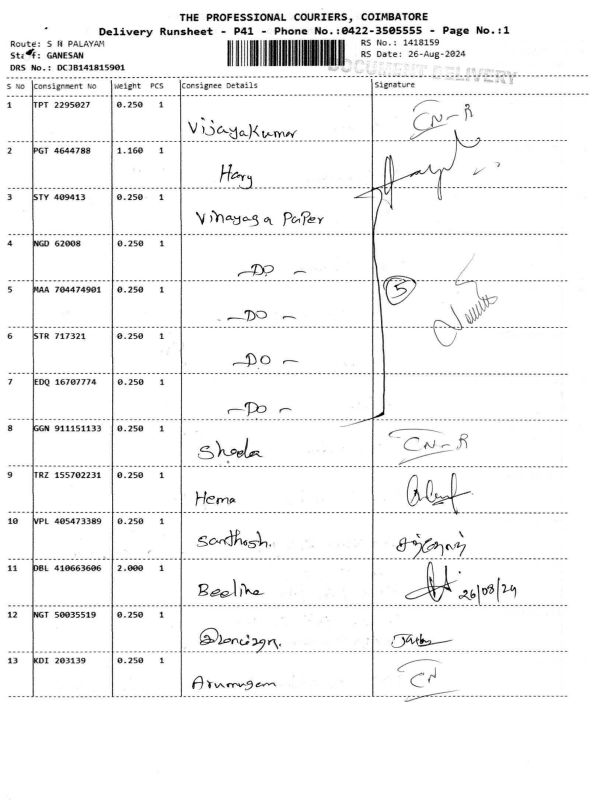 THE PROFESSIONAL COURIERS, COIMBATORE
Delivery Runsheet - P41 - Phone No.:0422-3505555 - Page No.:1
Route: S N PALAYAM
RS No.: 1418159
Staff: GANESAN
RS Date: 26-Aug-2024
DRS No.: DCJB141815901
DOCUMENT DELIVERY
S No Consignment No Weight PCS Consignee Details Signature
1 TPT 2295027 0.250 1 Vijayakumar CN-R
2 PGT 4644788 1.160 1 Hary
3 STY 409413 0.250 1 Vinayaga PaPer
4 NGD 62008 0.250 1 -DO-
5 MAA 704474901 0.250 1 -DO- 5
6 STR 717321 0.250 1 -DO-
7 EDQ 16707774 0.250 1 -DO-
8 GGN 911151133 0.250 1 CN-R
9 TRZ 155702231 0.250 1 Hema
10 VPL 405473389 0.250 1 Santhosh.
11 DBL 410663606 2.000 1 Beeline 26/08/24
12 NGT 50035519 0.250 1
13 KDI 203139 0.250 1 Arumugam CN